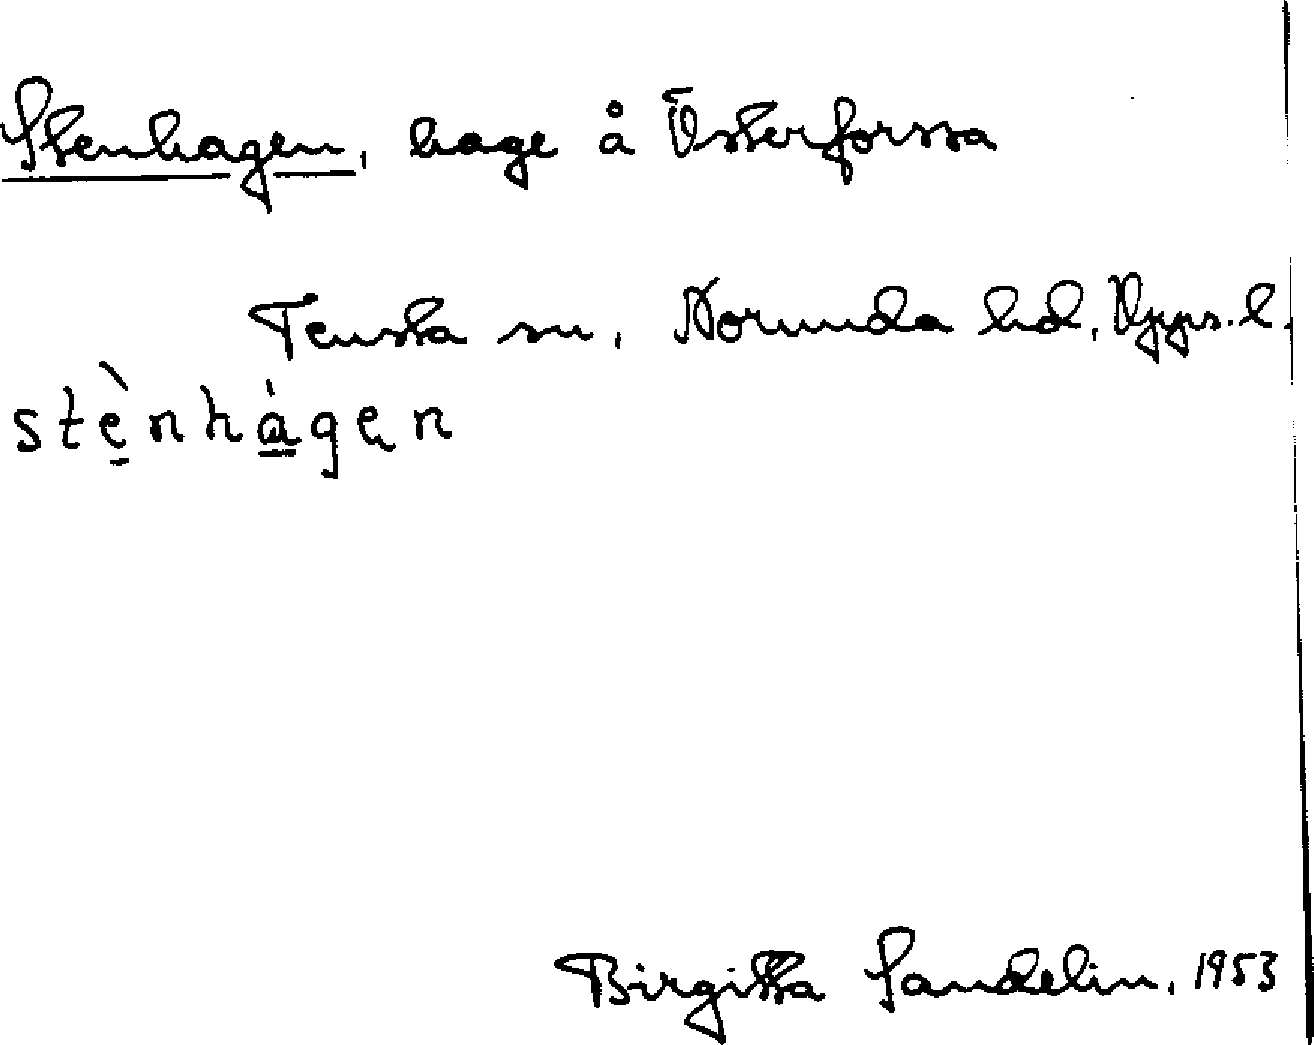 Stenhagen, hage å Österforssa
Tensta sn, Norunda hd, Upps. l.
stè̱nhá̱gen
Birgitta Sandelin, 1953